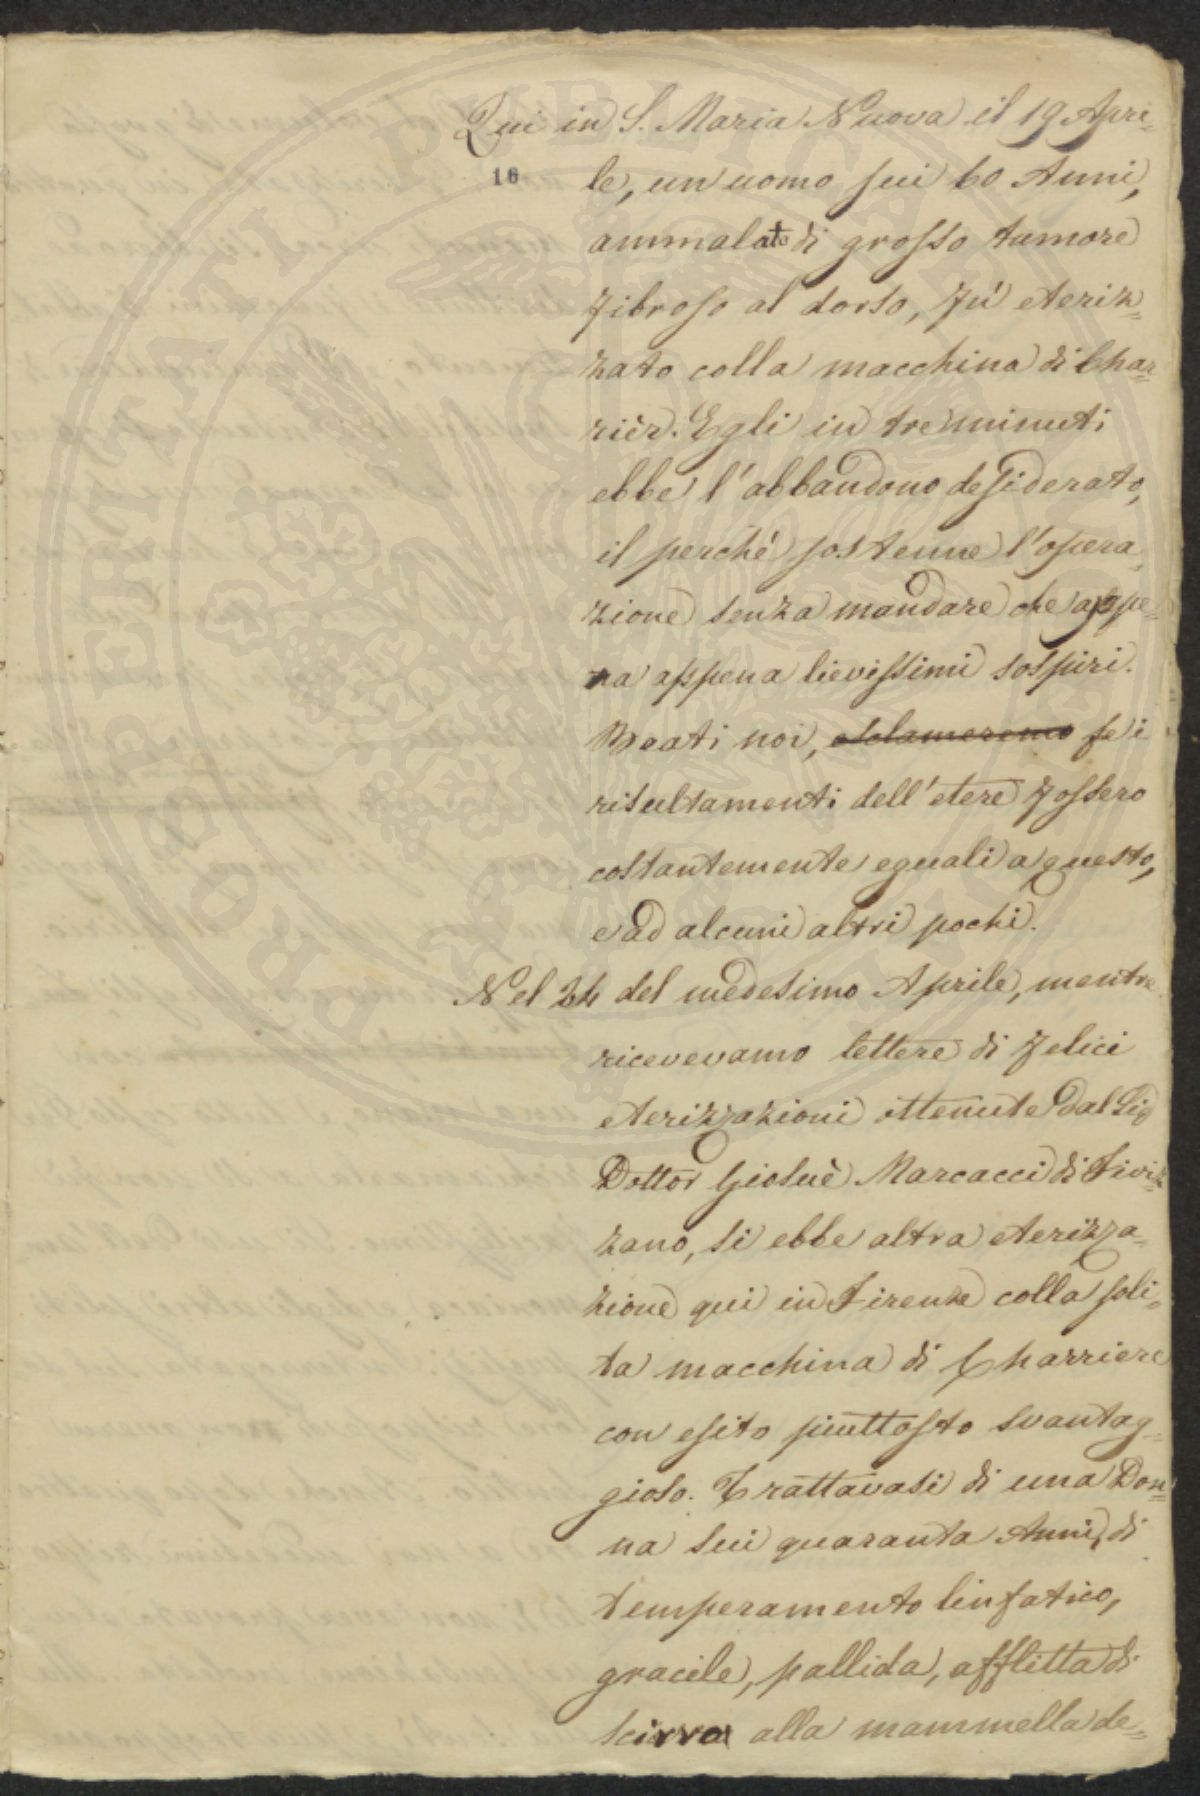 Qui in S. Maria Nuova il 19 Apri=
16
le, un uomo sui 60 Anni,
ammalato di grosso tumore
fibroso al dorso, fù eteriz=
zato colla macchina di Char=
rièr. Egli in tre minuti
ebbe l'abbandono desiderato,
il perchè sostenne l'opera=
zione senza mandare che appe=
na appena lievissimi sospiri.
Beati noi, esclameremo se i
risultamenti dell'etere fossero
costantemente eguali a questo,
e ad alcuni altri pochi.
Nel 24 del medesimo Aprile, mentre
ricevevamo lettere di felici
eterizzazioni ottenute dal Sig
Dottor Giosuè Marcacci di Fiviz=
zano, si ebbe altra eterizza=
zione qui in Firenze colla soli=
ta macchina di Charriere
con esito piuttosto svantag=
gioso. Trattavasi di una Don=
na sui quaranta Anni, di
temperamento linfatico,
gracile, pallida, afflitta di
scirro alla mammella de=
PROPERITATI PUBLICAE